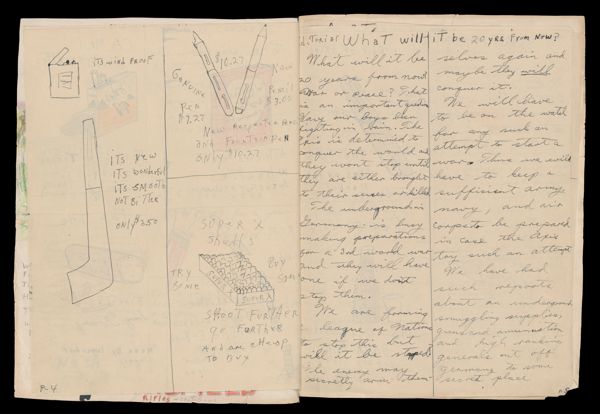 its wind proof
its new
its wonderful
its smooth
not bitter
only $2.50
P-4
$10.27
Genuine
Pen
$7.27
New
Pencil
$3.00
New
and Fountain Pen
only $10.27
Super X
Shells
Try
Some
Buy
Some
Super X
Shoot further
go further
and are cheap
to buy
What will it be 20 yrs from now?
What will it be
20 years from now
War or peace? That
is an important question
Have our boys been
fighting in vain. The
Axis is determined to
conquer the world and
they wont stop until
they are either brought
to their senses or killed
The underground in
Germany is busy
making preparations
for a 3rd world war
and they will have
one if we don't
stop them.
We are forming
a league of Nations
to stop this but
will it be stopped?
The enemy may
secretly arm them-
selves again and
maybe they will
conquer it.
We will have
to be on the watch
for any such an
attempt to start a
war. Thus we will
have to keep a
sufficient army
navy, and air
corps to be prepared
in case the Axis
try such an attempt
We have had
such reports
about an underground
smuggling supplies,
guns and ammunition
and high ranking
generals out off
germany to some
secret place